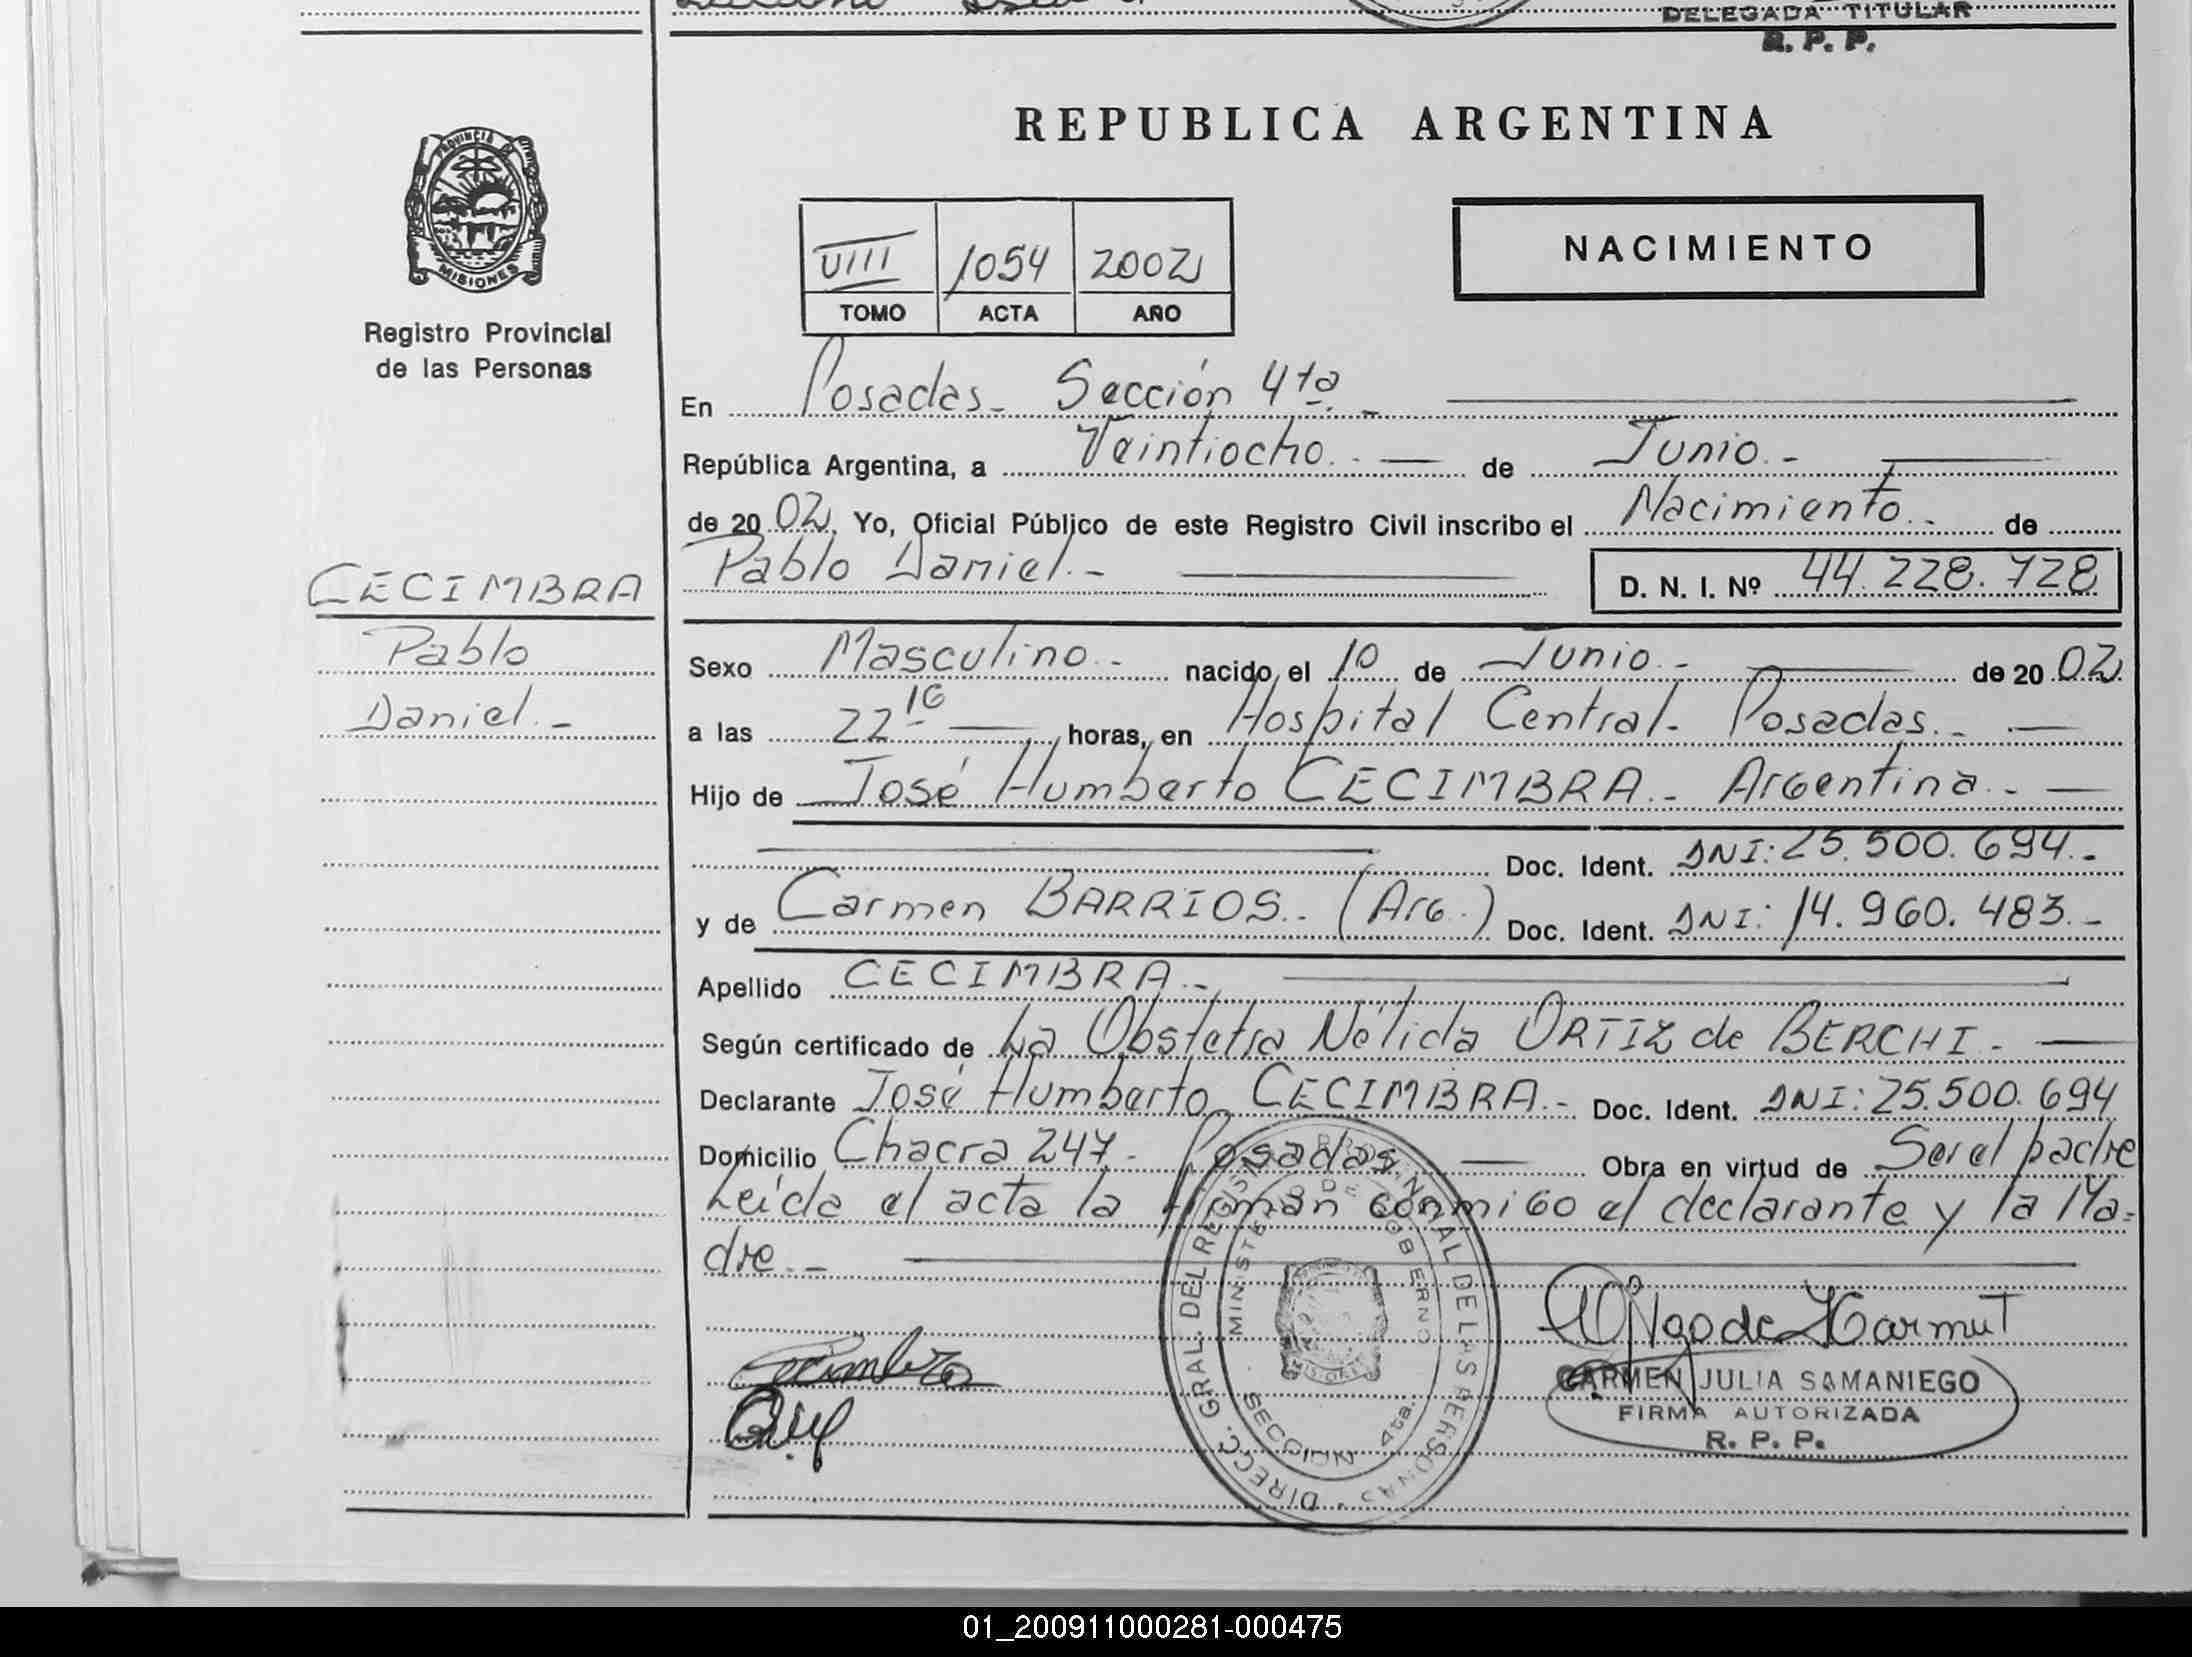 DELEGADA TITULAR
R. P. P.
PROVINCIA DE
MISIONES
Registro Provincial
de las Personas
REPUBLICA ARGENTINA
VIII 1054 2002
TOMO ACTA AÑO
NACIMIENTO
En Posadas. Sección 4ta.
República Argentina, a Veintiocho. de Junio.
de 20 02, Yo, Oficial Público de este Registro Civil inscribo el Nacimiento. de
Pablo Daniel. D. N. I. Nº 44.228.728
CECIMBRA
Pablo
Daniel.
Sexo Masculino. nacido el 10 de Junio. de 20 02
a las 22 16 horas, en Hospital Central. Posadas.
Hijo de José Humberto CECIMBRA. Argentina.
Doc. Ident. DNI: 25.500.694.
y de Carmen BARRIOS. (Arg.) Doc. Ident. DNI: 14.960.483.
Apellido CECIMBRA.
Según certificado de La Obstetra Nélida ORTIZ de BERCHI.
Declarante José Humberto CECIMBRA. Doc. Ident. DNI: 25.500.694
Domicilio Chacra 247. Posadas Obra en virtud de Ser el padre
Leída el acta la firman conmigo el declarante y la Ma=
dre.
DIRECC. GRAL. DEL REGISTRO PROVINCIAL DE LAS PERSONAS
MINISTERIO DE GOBIERNO
SECCION 4ta.
CARMEN JULIA SAMANIEGO
FIRMA AUTORIZADA
R. P. P.
01_200911000281-000475